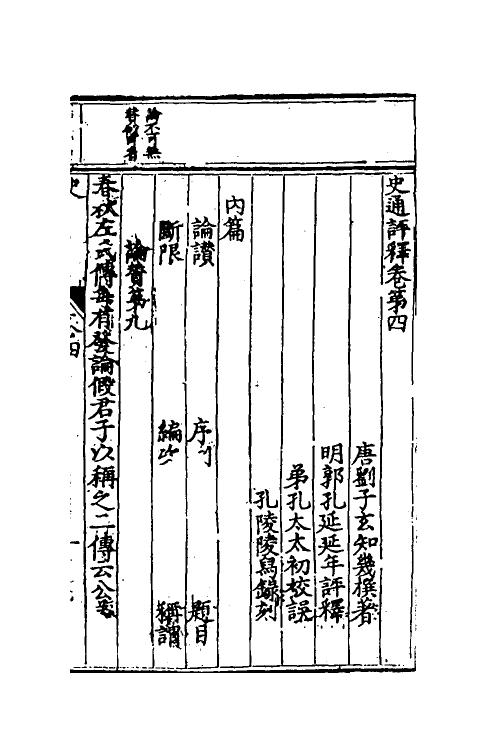 史通評釋卷第四
唐劉子玄知幾撰著
明郭孔延延年評釋
弟孔太太初校誤
孔陵陵寫錄刻
內篇
論讚 序 題目
斷限 編 稱謂
論贊第九
春秋左氏傳每有發論假君子以稱之二傳云公
論不可無